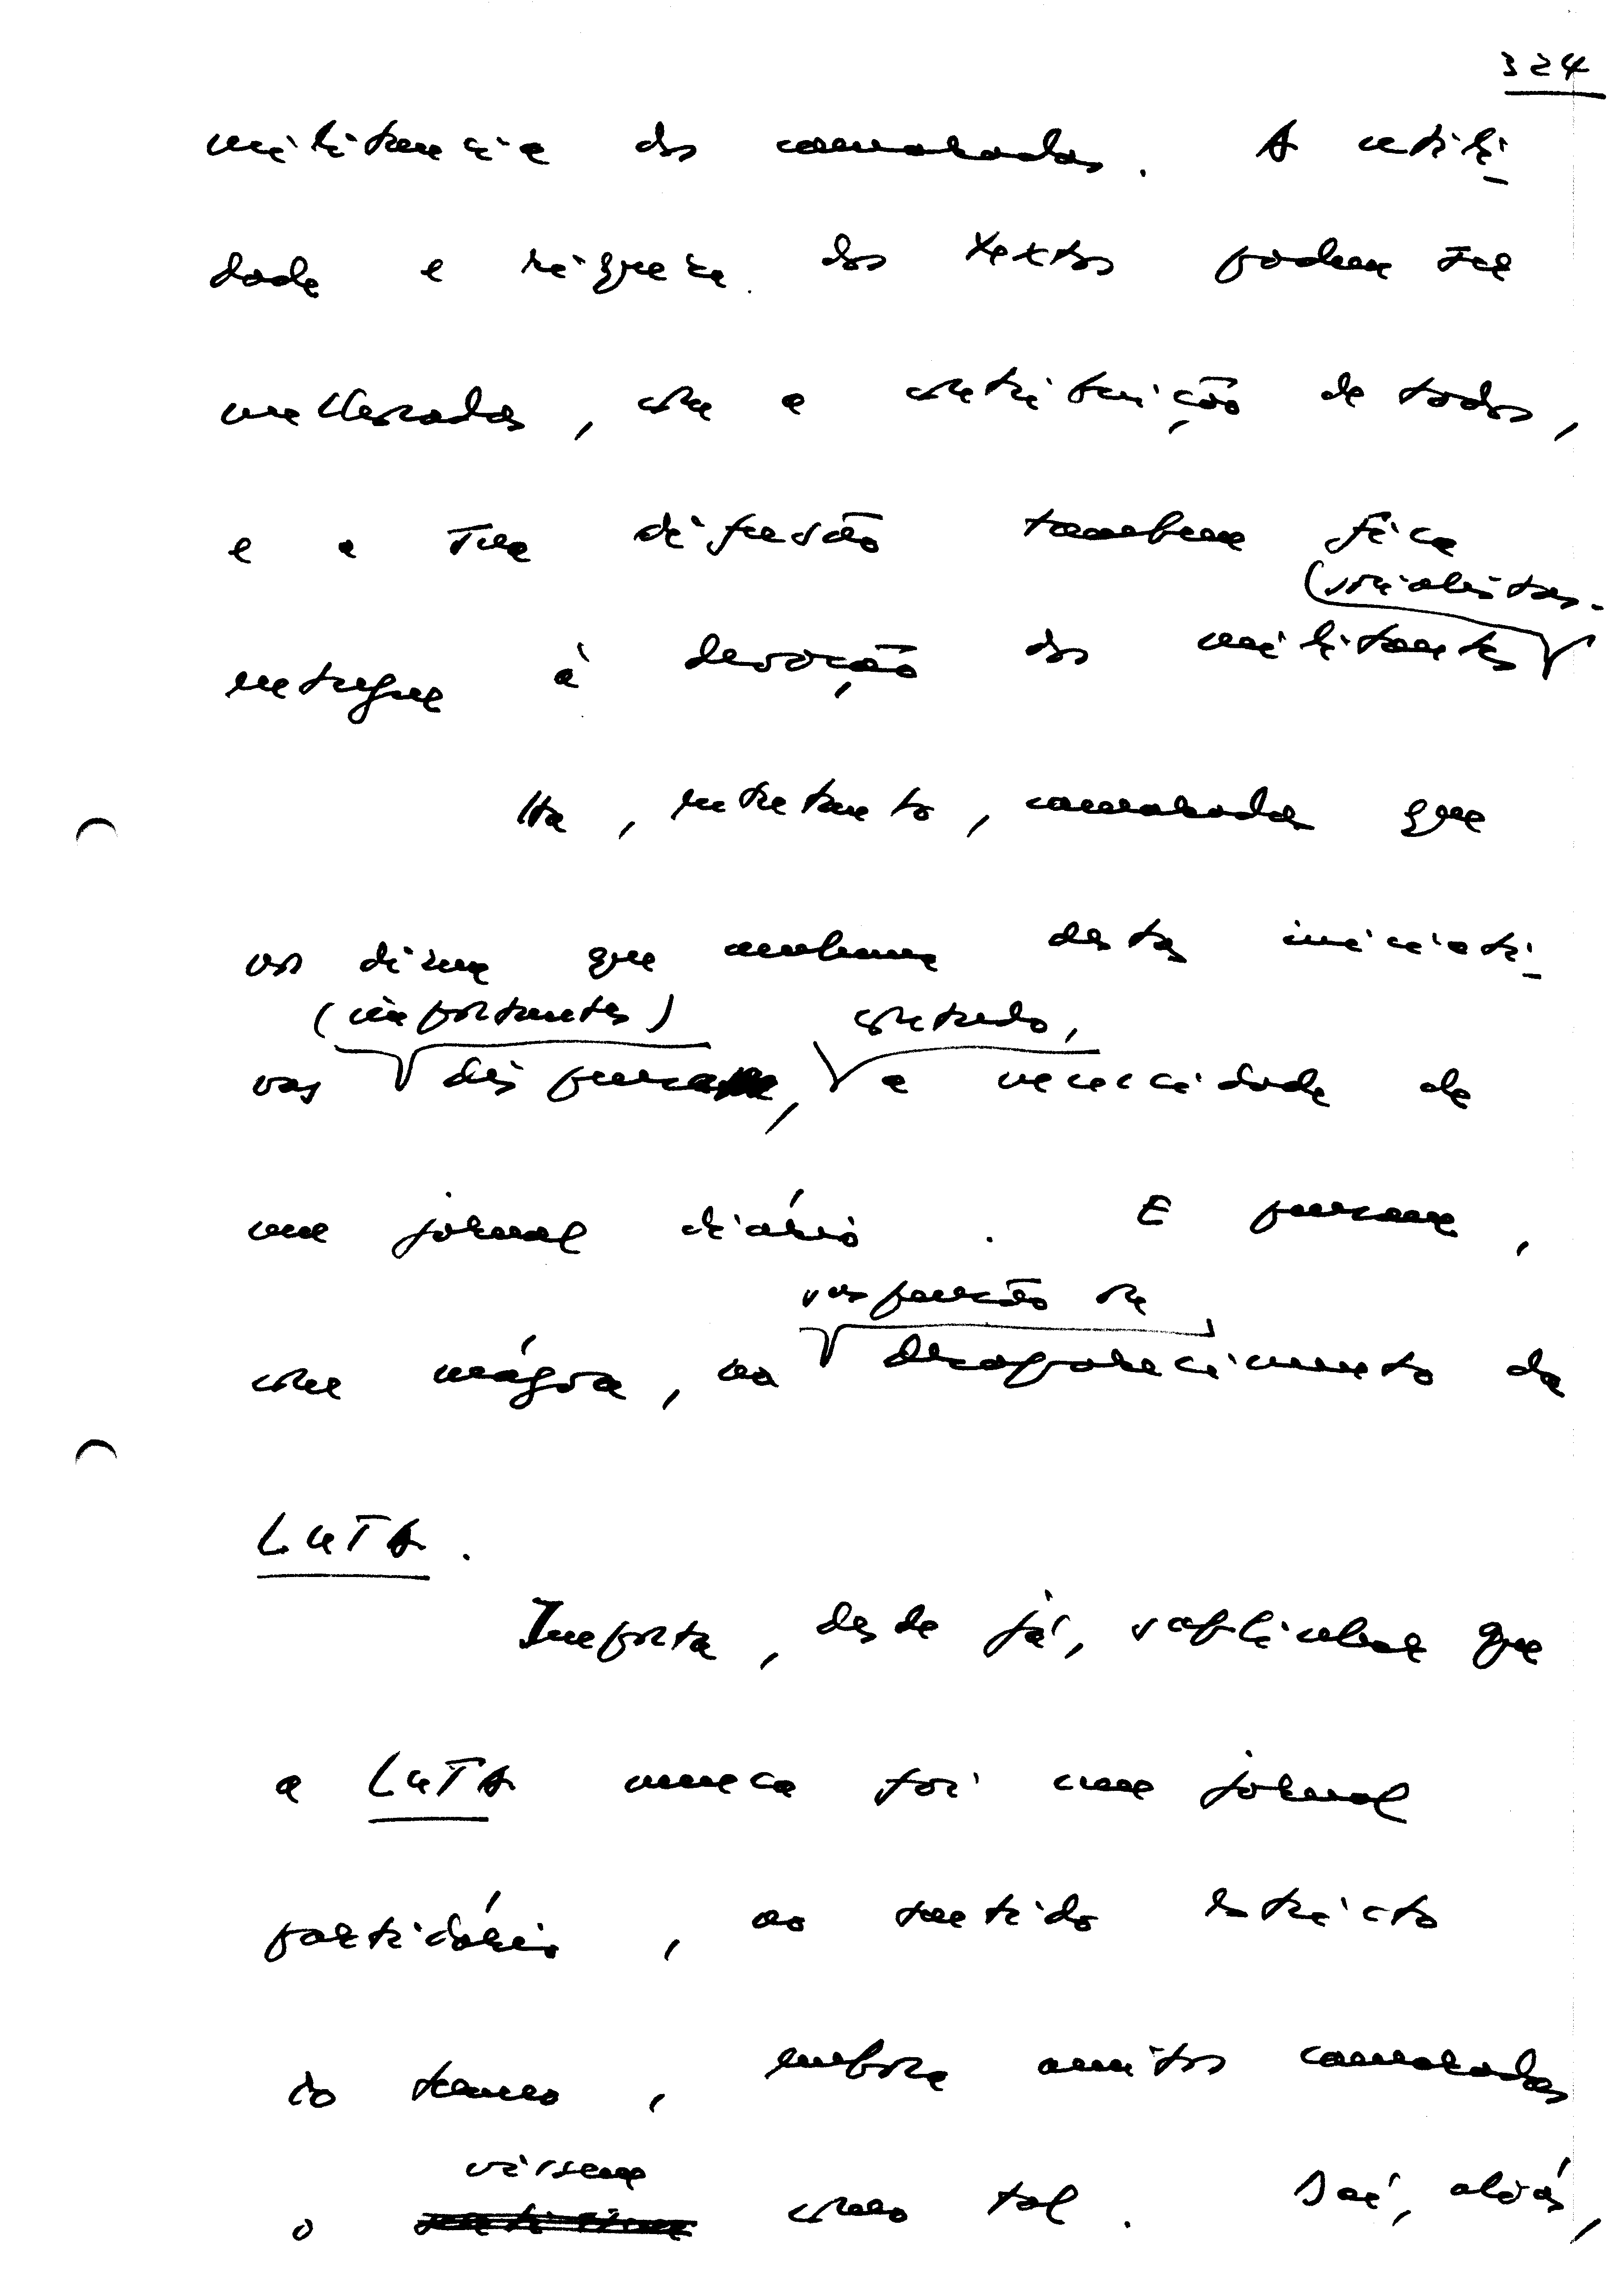 324
militancia dos camaradas. A utili-
dade e riqueza dos textos podem ser
melhoradas, com a contribuição de todos,
e a sua difusão tambem fica
(socialistas.
entregue à devoção dos militantes
Ha, entretanto, camaradas que
nos dizem que nenhuma destas iniciati-
(importantes) contudo,
vas dispensa, a necessidade de
um jornal diário. E pensam,
suspensão ou
com mágoa, no desaparecimento da
LUTA.
Importa, desde já, sublinhar que
a LUTA nunca foi um jornal
partidário, no sentido estricto
do termo, embora muitos camaradas
vissem
o como tal. Daí, aliás,